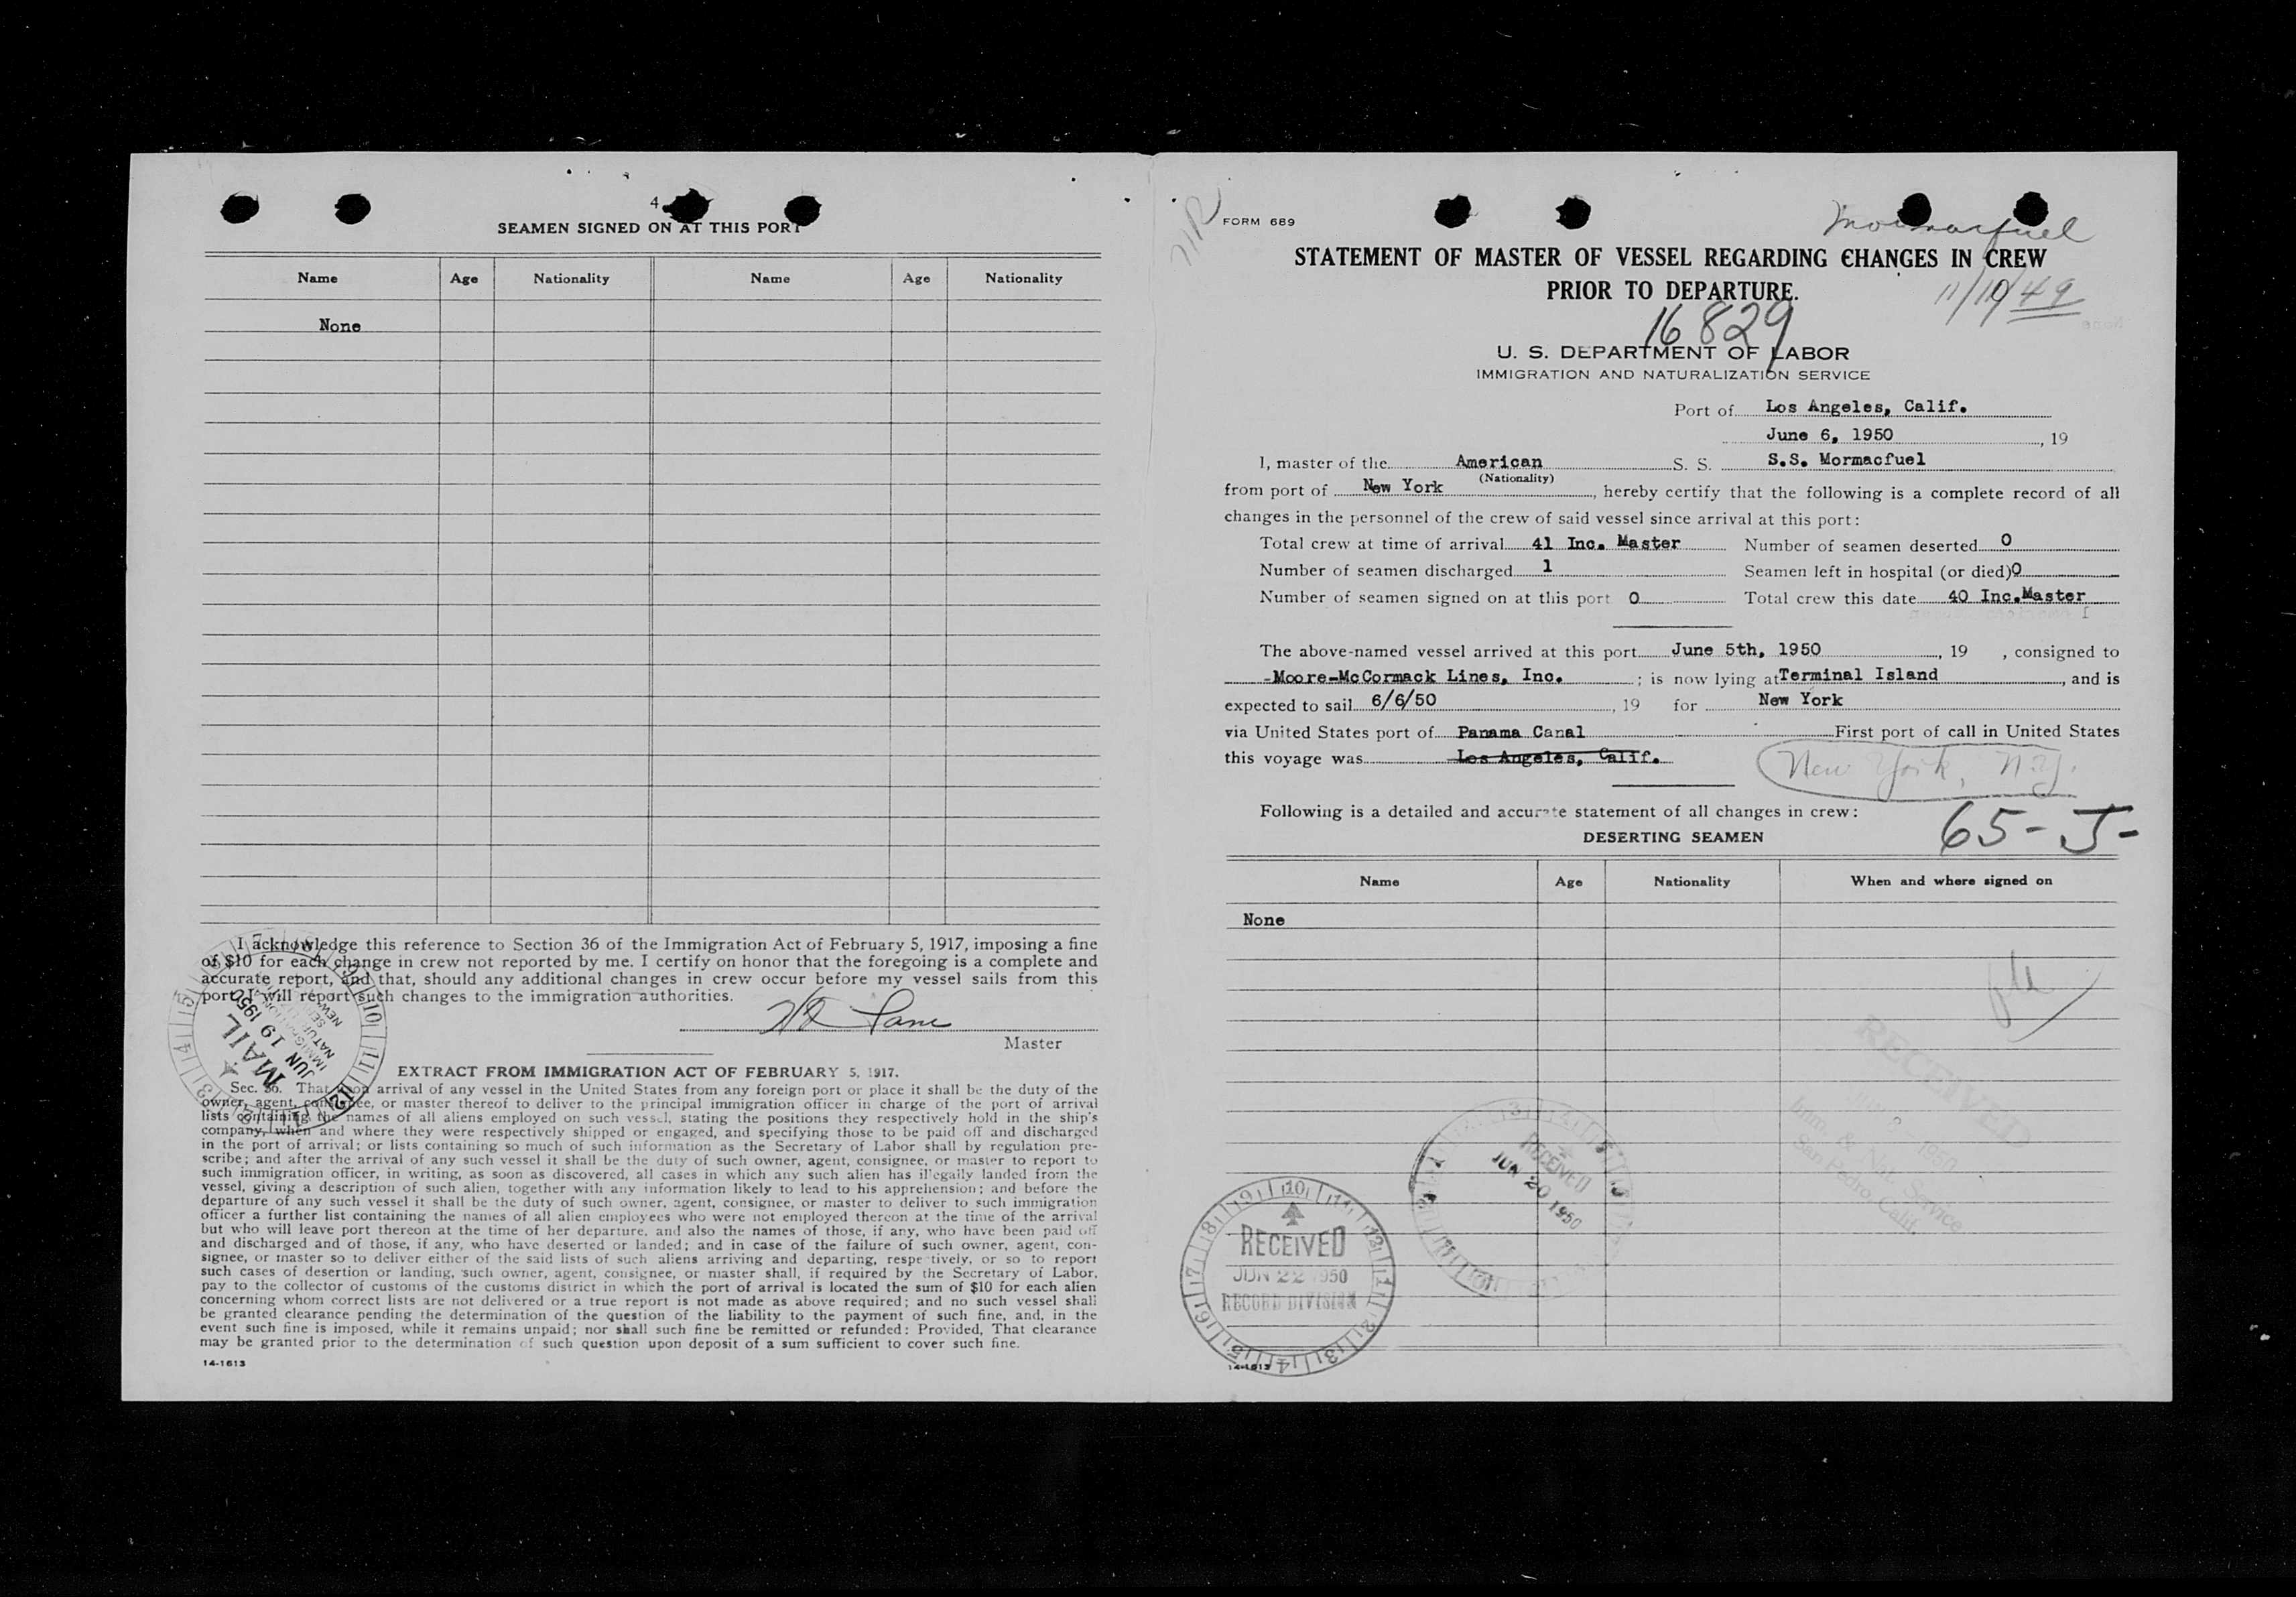 4
SEAMEN SIGNED ON AT THIS PORT
Name Age Nationality Name Age Nationality
None
I acknowledge this reference to Section 36 of the Immigration Act of February 5, 1917, imposing a fine
of $10 for each change in crew not reported by me. I certify on honor that the foregoing is a complete and
accurate report, and that, should any additional changes in crew occur before my vessel sails from this
port I will report such changes to the immigration authorities.
Master
MAIL
JUN 19 1950
EXTRACT FROM IMMIGRATION ACT OF FEBRUARY 5, 1917.
Sec. 36. That upon arrival of any vessel in the United States from any foreign port or place it shall be the duty of the
owner, agent, consignee, or master thereof to deliver to the principal immigration officer in charge of the port of arrival
lists containing the names of all aliens employed on such vessel, stating the positions they respectively hold in the ship's
company, when and where they were respectively shipped or engaged, and specifying those to be paid off and discharged
in the port of arrival; or lists containing so much of such information as the Secretary of Labor shall by regulation pre-
scribe; and after the arrival of any such vessel it shall be the duty of such owner, agent, consignee, or master to report to
such immigration officer, in writing, as soon as discovered, all cases in which any such alien has illegally landed from the
vessel, giving a description of such alien, together with any information likely to lead to his apprehension; and before the
departure of any such vessel it shall be the duty of such owner, agent, consignee, or master to deliver to such immigration
officer a further list containing the names of all alien employees who were not employed thereon at the time of the arrival
but who will leave port thereon at the time of her departure, and also the names of those, if any, who have been paid off
and discharged and of those, if any, who have deserted or landed; and in case of the failure of such owner, agent, con-
signee, or master so to deliver either of the said lists of such aliens arriving and departing, respectively, or so to report
such cases of desertion or landing, such owner, agent, consignee, or master shall, if required by the Secretary of Labor,
pay to the collector of customs of the customs district in which the port of arrival is located the sum of $10 for each alien
concerning whom correct lists are not delivered or a true report is not made as above required; and no such vessel shall
be granted clearance pending the determination of the question of the liability to the payment of such fine, and, in the
event such fine is imposed, while it remains unpaid; nor shall such fine be remitted or refunded: Provided, That clearance
may be granted prior to the determination of such question upon deposit of a sum sufficient to cover such fine.
14-1613
FORM 689
Mormacfuel
STATEMENT OF MASTER OF VESSEL REGARDING CHANGES IN CREW
PRIOR TO DEPARTURE.
11/10/49
16829
U. S. DEPARTMENT OF LABOR
IMMIGRATION AND NATURALIZATION SERVICE
Port of Los Angeles, Calif.
June 6, 1950, 19
I, master of the American S. S. S.S. Mormacfuel
(Nationality)
from port of New York, hereby certify that the following is a complete record of all
changes in the personnel of the crew of said vessel since arrival at this port:
Total crew at time of arrival 41 Inc. Master Number of seamen deserted 0
Number of seamen discharged 1 Seamen left in hospital (or died) 0
Number of seamen signed on at this port 0 Total crew this date 40 Inc.Master
The above-named vessel arrived at this port June 5th, 1950, 19 , consigned to
-Moore-McCormack Lines, Inc. ; is now lying at Terminal Island, and is
expected to sail 6/6/50, 19 for New York
via United States port of Panama Canal First port of call in United States
this voyage was Los Angeles, Calif. New York, N.Y.
Following is a detailed and accurate statement of all changes in crew:
65-J-
DESERTING SEAMEN
Name Age Nationality When and where signed on
None
RECEIVED
1950
Imm. & Nat. Service
San Pedro, Calif.
RECEIVED
JUN 20 1950
RECEIVED
JUN 22 1950
RECORD DIVISION
14-1613